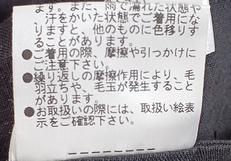 ます。また、雨で濡れた状態や
汗をかいた状態でご着用にな
りますと、他のものに色移りす
ることがあります。
●ご着用の際、摩擦や引っかけに
ご注意下さい。
●繰り返しの摩擦作用により、毛
羽立ちや、毛玉が発生すること
があります。
●お取扱いの際には、取扱い絵表
示をご確認下さい。